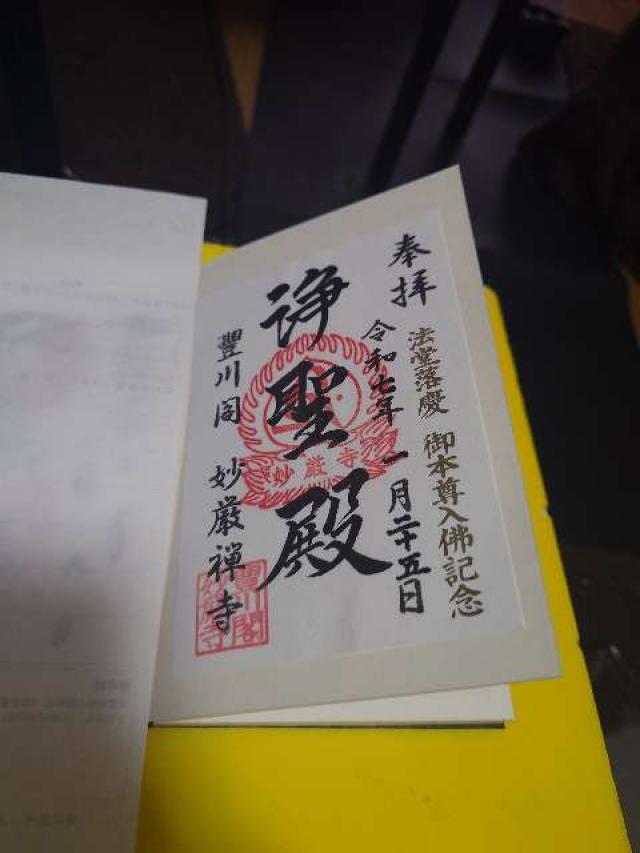 奉拝
法堂落慶 御本尊入佛記念
令和七年 一月二十五日
諍聖殿
妙厳寺
豐川閣 妙厳禅寺
豐川閣